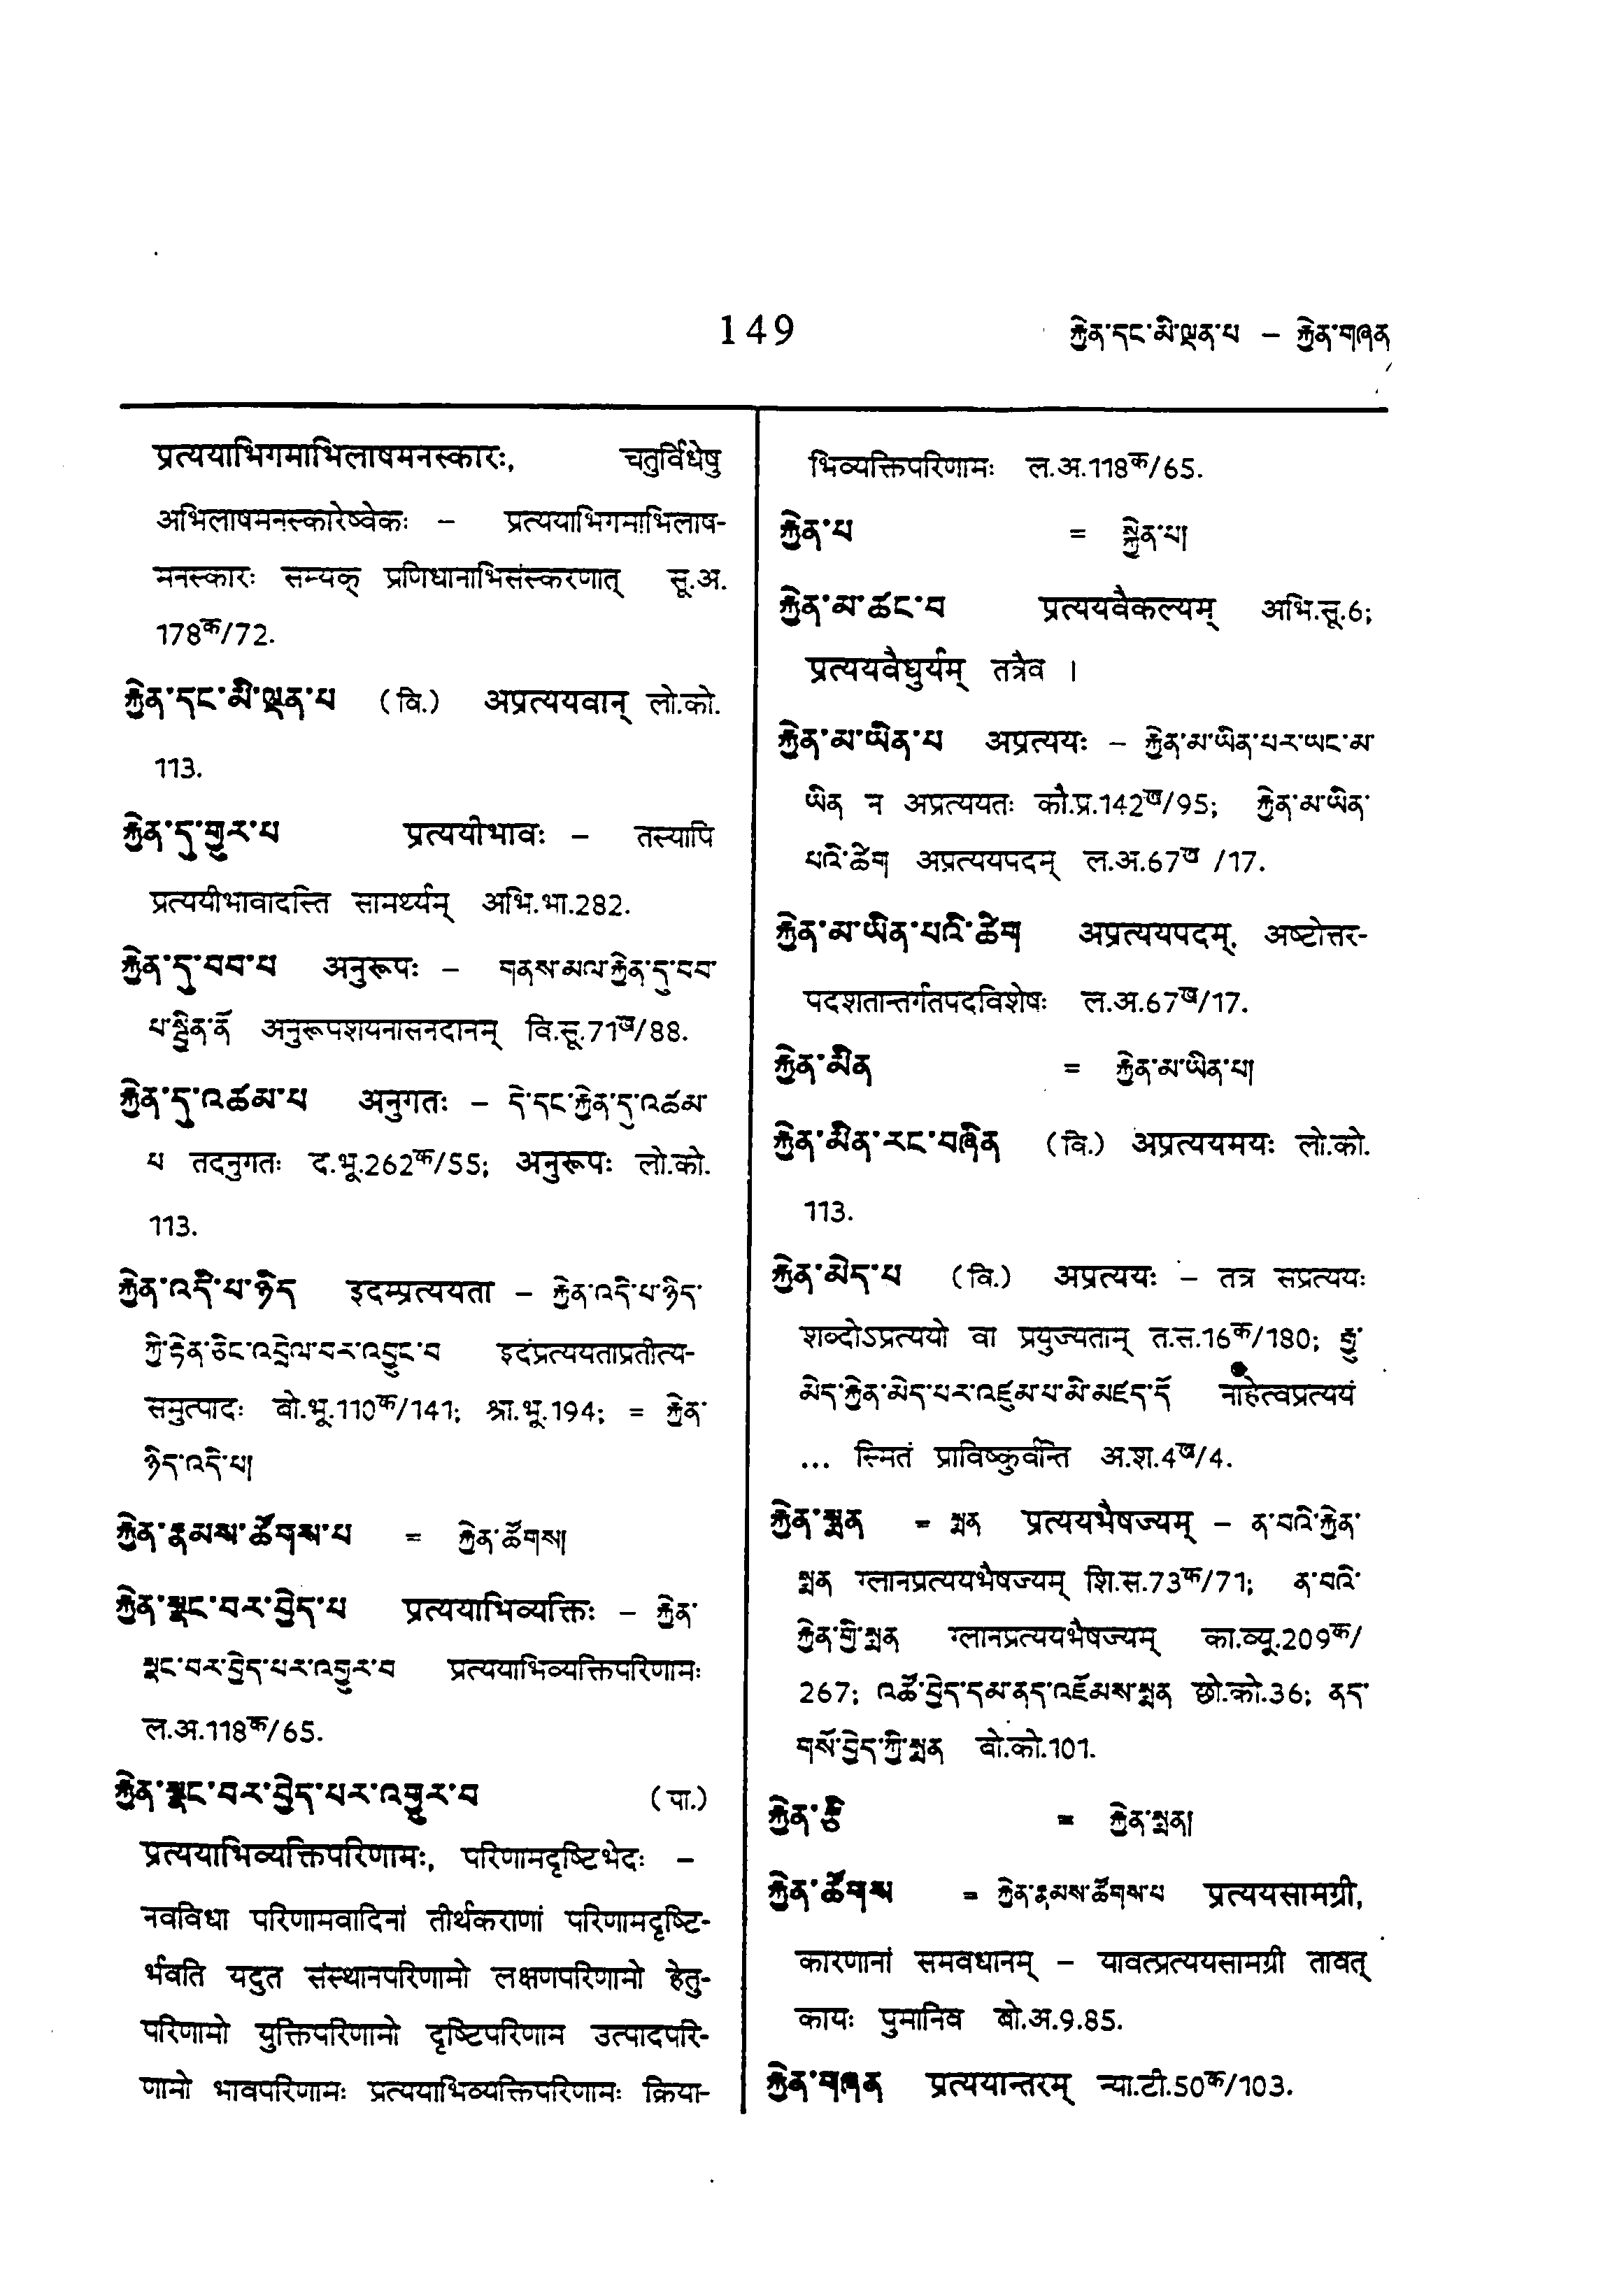 149
རྐྱེན་དང་མི་ལྡན་པ – རྐྱེན་གཞན
प्रत्ययाभिगमाभिलाषमनस्कारः, चतुर्विधेषु
अभिलाषमनस्कारेष्वेकः – प्रत्ययाभिगमाभिलाष-
मनस्कारः सम्यक् प्रणिधानाभिसंस्करणात् सू.अ.
178क/72.
རྐྱེན་དང་མི་ལྡན་པ (वि.) अप्रत्ययवान् लो.को.
113.
རྐྱེན་དུ་གྱུར་པ प्रत्ययीभावः – तस्यापि
प्रत्ययीभावादस्ति सामर्थ्यम् अभि.भा.282.
རྐྱེན་དུ་བབ་པ अनुरूपः – གནས་མལ་རྐྱེན་དུ་བབ་
པ་སྦྱིན་ནོ अनुरूपशयनासनदानम् वि.सू.71ख/88.
རྐྱེན་དུ་འཚམ་པ अनुगतः – དེ་དང་རྐྱེན་དུ་འཚམ་
པ तदनुगतः द.भू.262क/55; अनुरूपः लो.को.
113.
རྐྱེན་འདི་པ་ཉིད इदम्प्रत्ययता – རྐྱེན་འདི་པ་ཉིད་
ཀྱི་རྟེན་ཅིང་འབྲེལ་བར་འབྱུང་བ इदंप्रत्ययताप्रतीत्य-
समुत्पादः बो.भू.110क/141; श्रा.भू.194; = རྐྱེན་
ཉིད་འདི་པ།
རྐྱེན་རྣམས་ཚོགས་པ = རྐྱེན་ཚོགས།
རྐྱེན་སྣང་བར་བྱེད་པ प्रत्ययाभिव्यक्तिः – རྐྱེན་
སྣང་བར་བྱེད་པར་འགྱུར་བ प्रत्ययाभिव्यक्तिपरिणामः
ल.अ.118क/65.
རྐྱེན་སྣང་བར་བྱེད་པར་འགྱུར་བ (पा.)
प्रत्ययाभिव्यक्तिपरिणामः, परिणामदृष्टिभेदः –
नवविधा परिणामवादिनां तीर्थकराणां परिणामदृष्टि-
र्भवति यदुत संस्थानपरिणामो लक्षणपरिणामो हेतु-
परिणामो युक्तिपरिणामो दृष्टिपरिणाम उत्पादपरि-
णामो भावपरिणामः प्रत्ययाभिव्यक्तिपरिणामः क्रिया-
भिव्यक्तिपरिणामः ल.अ.118क/65.
རྐྱེན་པ = སྐྱེན་པ།
རྐྱེན་མ་ཚང་བ प्रत्ययवैकल्यम् अभि.सू.6;
प्रत्ययवैधुर्यम् तत्रैव ।
རྐྱེན་མ་ཡིན་པ अप्रत्ययः – རྐྱེན་མ་ཡིན་པར་ཡང་མ་
ཡིན न अप्रत्ययतः कौ.प्र.142ख/95; རྐྱེན་མ་ཡིན་
པའི་ཚིག अप्रत्ययपदम् ल.अ.67ख /17.
རྐྱེན་མ་ཡིན་པའི་ཚིག अप्रत्ययपदम्, अष्टोत्तर-
पदशतान्तर्गतपदविशेषः ल.अ.67ख/17.
རྐྱེན་མིན = རྐྱེན་མ་ཡིན་པ།
རྐྱེན་མིན་རང་བཞིན (वि.) अप्रत्ययमयः लो.को.
113.
རྐྱེན་མེད་པ (वि.) अप्रत्ययः – तत्र सप्रत्ययः
शब्दोऽप्रत्ययो वा प्रयुज्यताम् त.स.16क/180; རྒྱུ་
མེད་རྐྱེན་མེད་པར་འཛུམ་པ་མི་མཛད་དོ नाहेत्वप्रत्ययं
... स्मितं प्राविष्कुर्वन्ति अ.श.4ख/4.
རྐྱེན་སྨན = སྨན प्रत्ययभैषज्यम् – ན་བའི་རྐྱེན་
སྨན ग्लानप्रत्ययभैषज्यम् शि.स.73क/71; ན་བའི་
རྐྱེན་གྱི་སྨན ग्लानप्रत्ययभैषज्यम् का.व्यू.209क/
267; འཚོ་བྱེད་དམ་ནད་འཇོམས་སྨན छो.को.36; ནད་
གསོ་བྱེད་ཀྱི་སྨན बो.को.101.
རྐྱེན་རྩི = རྐྱེན་སྨན།
རྐྱེན་ཚོགས = རྐྱེན་རྣམས་ཚོགས་པ प्रत्ययसामग्री,
कारणानां समवधानम् – यावत्प्रत्ययसामग्री तावत्
कायः पुमानिव बो.अ.9.85.
རྐྱེན་གཞན प्रत्ययान्तरम् न्या.टी.50क/103.